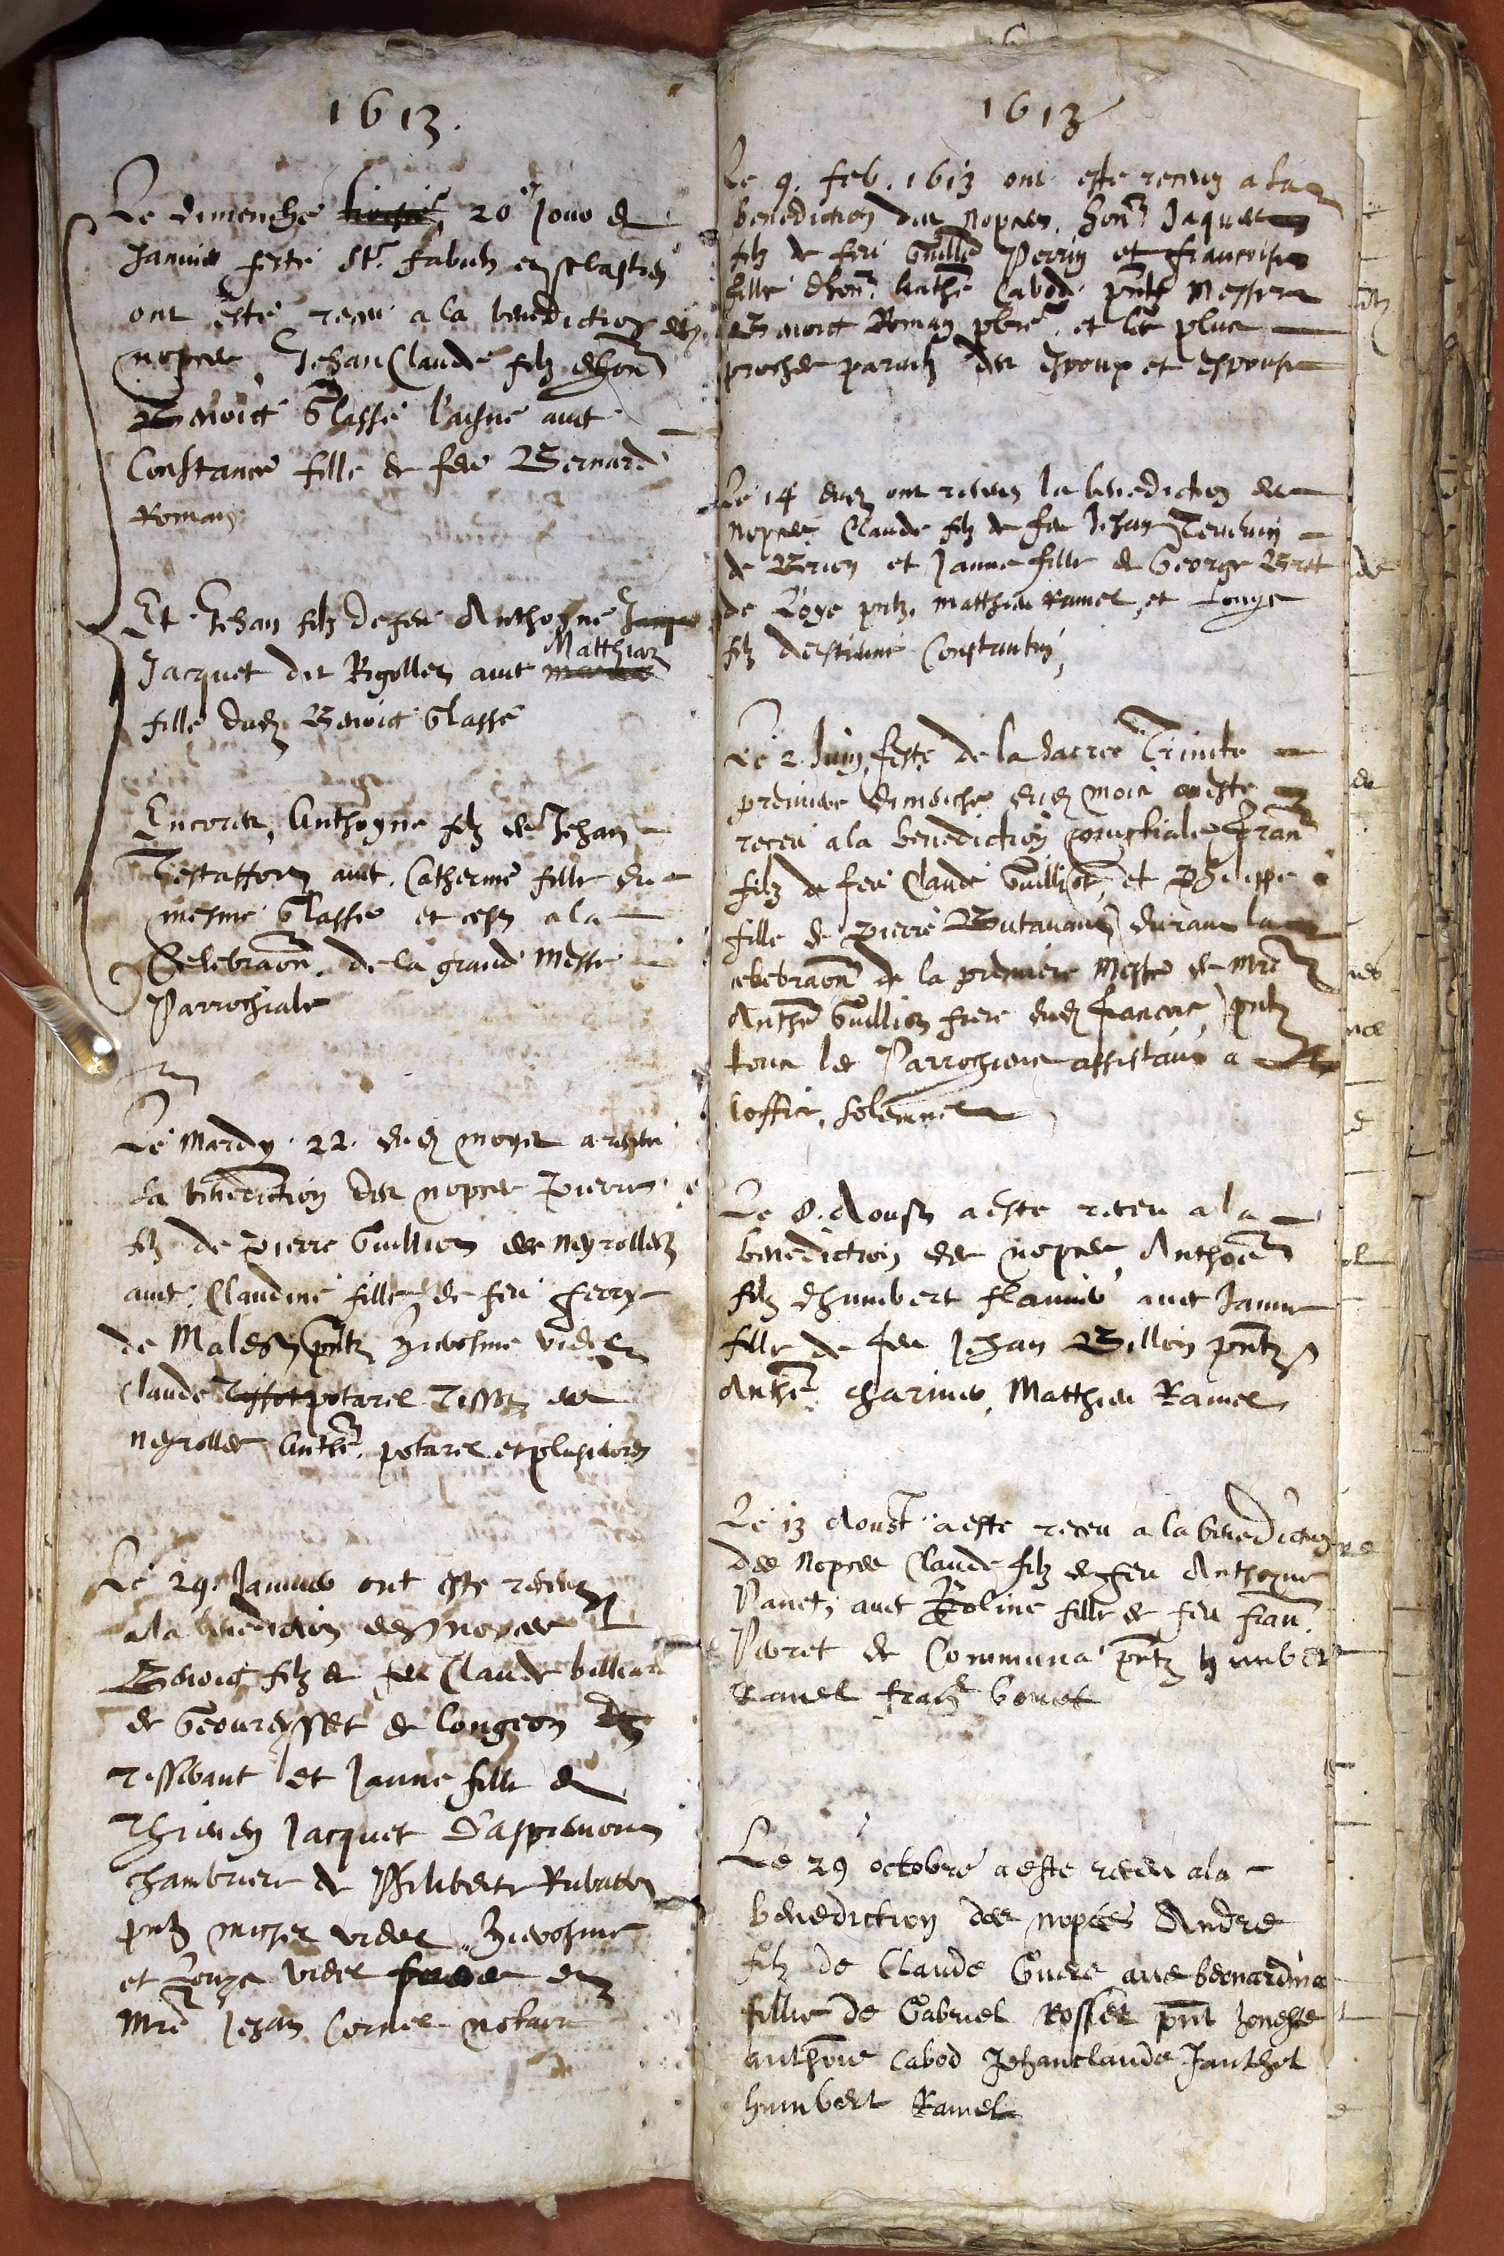 1613.
Le dimenche 20e Jour de
Janvier feste St. Fabien et sebastien
ont este receu a la benediction des
nopces, Jehan Claude filz dhon
Benoict Glasse laisne avec
Constance fille de feu Bernard
Roman
Et Jehan filz de feu Anthoyne
Matthiaz
Jacquet dit Rigollet avec
fille dud Benoict Glasse
Encores, Anthoyne filz de Jehan
avec Catherine fille du
mesme Glasse et a la
Celebraon de la grand Messe
Parrochiale
Le Mardy 22. dud moys a
la benediction des nopces Pierre
filz de Pierre Guillion des neyrolles
avec Claudine fille de feu ferry
de Malesz pntz Hierosme videl
Claude potarel Tissot des
neyrolles Anthe. potarel et plusieurs
Le 29. Janvier ont este receuz
a la benediction des nopces
Benoict filz de feu Claude billiard
de Geovreysset de longeon
et Janne fille de
Thieven Jacquet Daspremont
chambriere de Philiberte Rubatton
pntz videl, Hierosme
et Louys videl et
Mre Jehan Cornel notaire
1613
Le 9. feb. 1613 ont este receuz a la
benediction des nopces, hon Jaques
filz de feu Guille Perrin et francoise
fille dhon. Cabod pntz Messire
Benoict Roman pbre et les plus
proches parentz des espoux et espouse
Le 14 dud ont receu la benediction des
nopces Claude filz de feu Jehan
de Brion et Janne fille de George Bret
de Loye pntz. Matthieu Ramel, et Louys
filz destienne Constantin,
Le 2. Juin feste de la sacree Trinite
premier dimenche dud mois a este
receu a la benediction Fran
filz de feu Claude Guillion, et Philippe
fille de Pierre Butavant durant la
celebraon de la premiere Messe de Mre
Anthe Guillion frere dud francois, pntz
tous les Parrochiens assistans a
loffice solemnel
Le 8. Aoust a este receu a la
benediction des nopces Anthoe
filz dhumbert flamier avec Janne
fille de feu Jehan Billion pntz
Anthe. charvier, Matthieu Ramel,
Le 13 Aoust a este receu a la benediction
des nopces Claude filz de feu Anthoyne
Panet, avec fille de feu fran.
Perret de Communa pntz humbert
Ramel
Le 29 octobre a este receu a la
benediction des nopces Andre
filz de Claude Gueré avec bernardine
fillie de Gabriel Rosset pnt
anthoine Cabod Jehanclaude Janthet
humbert Ramel